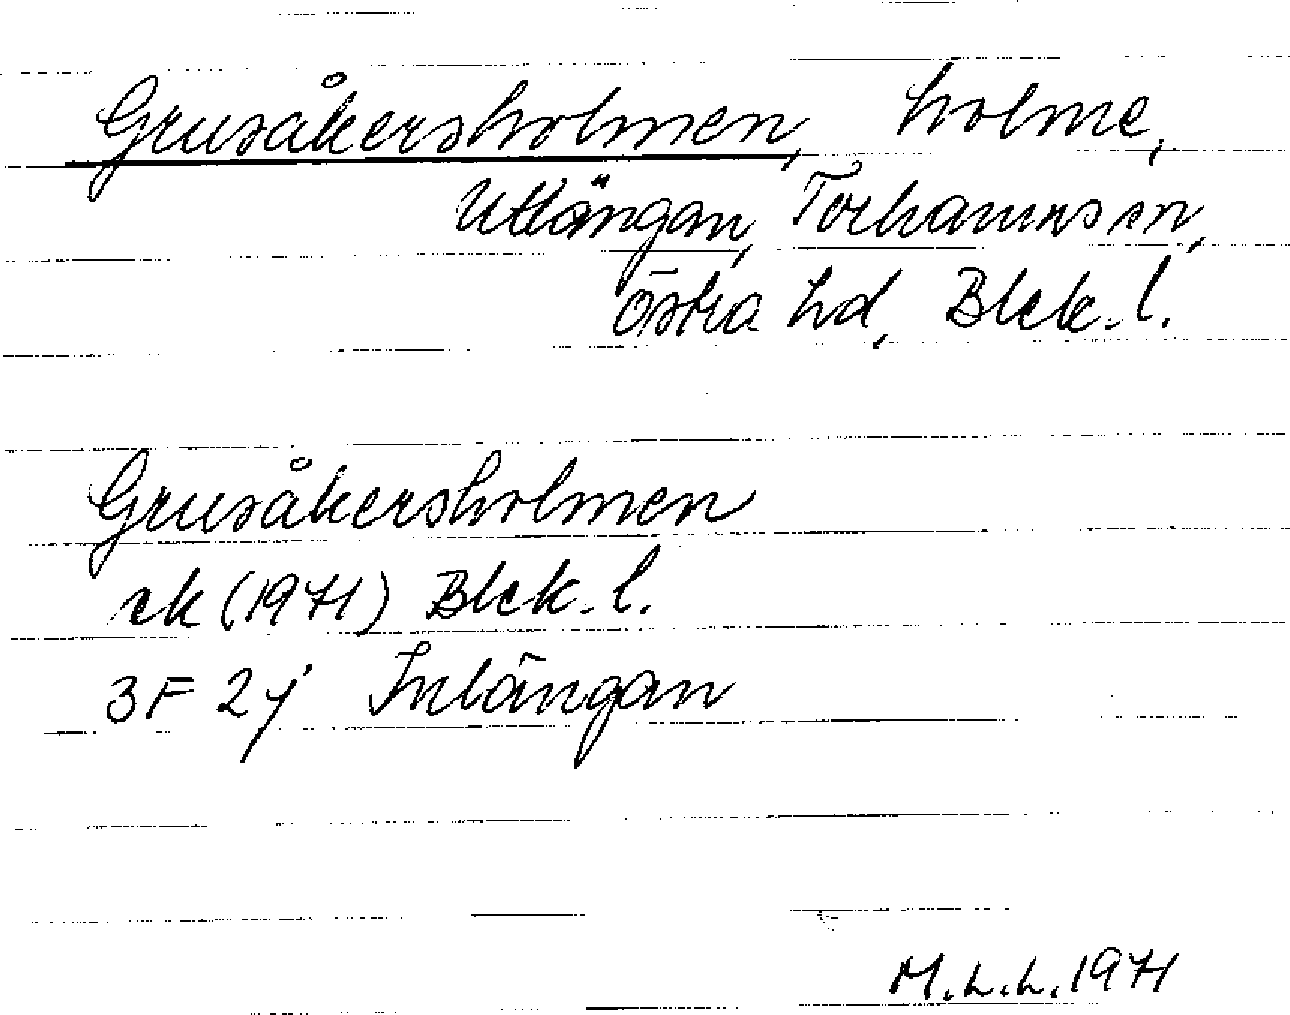 Grusåkersholmen, holme,
Utlängan, Torhamns sn,
Östra hd, Blek. l.
Grusåkersholmen
ek (1971) Blek. l.
3F 2j Inlängan
M.L.L. 1971